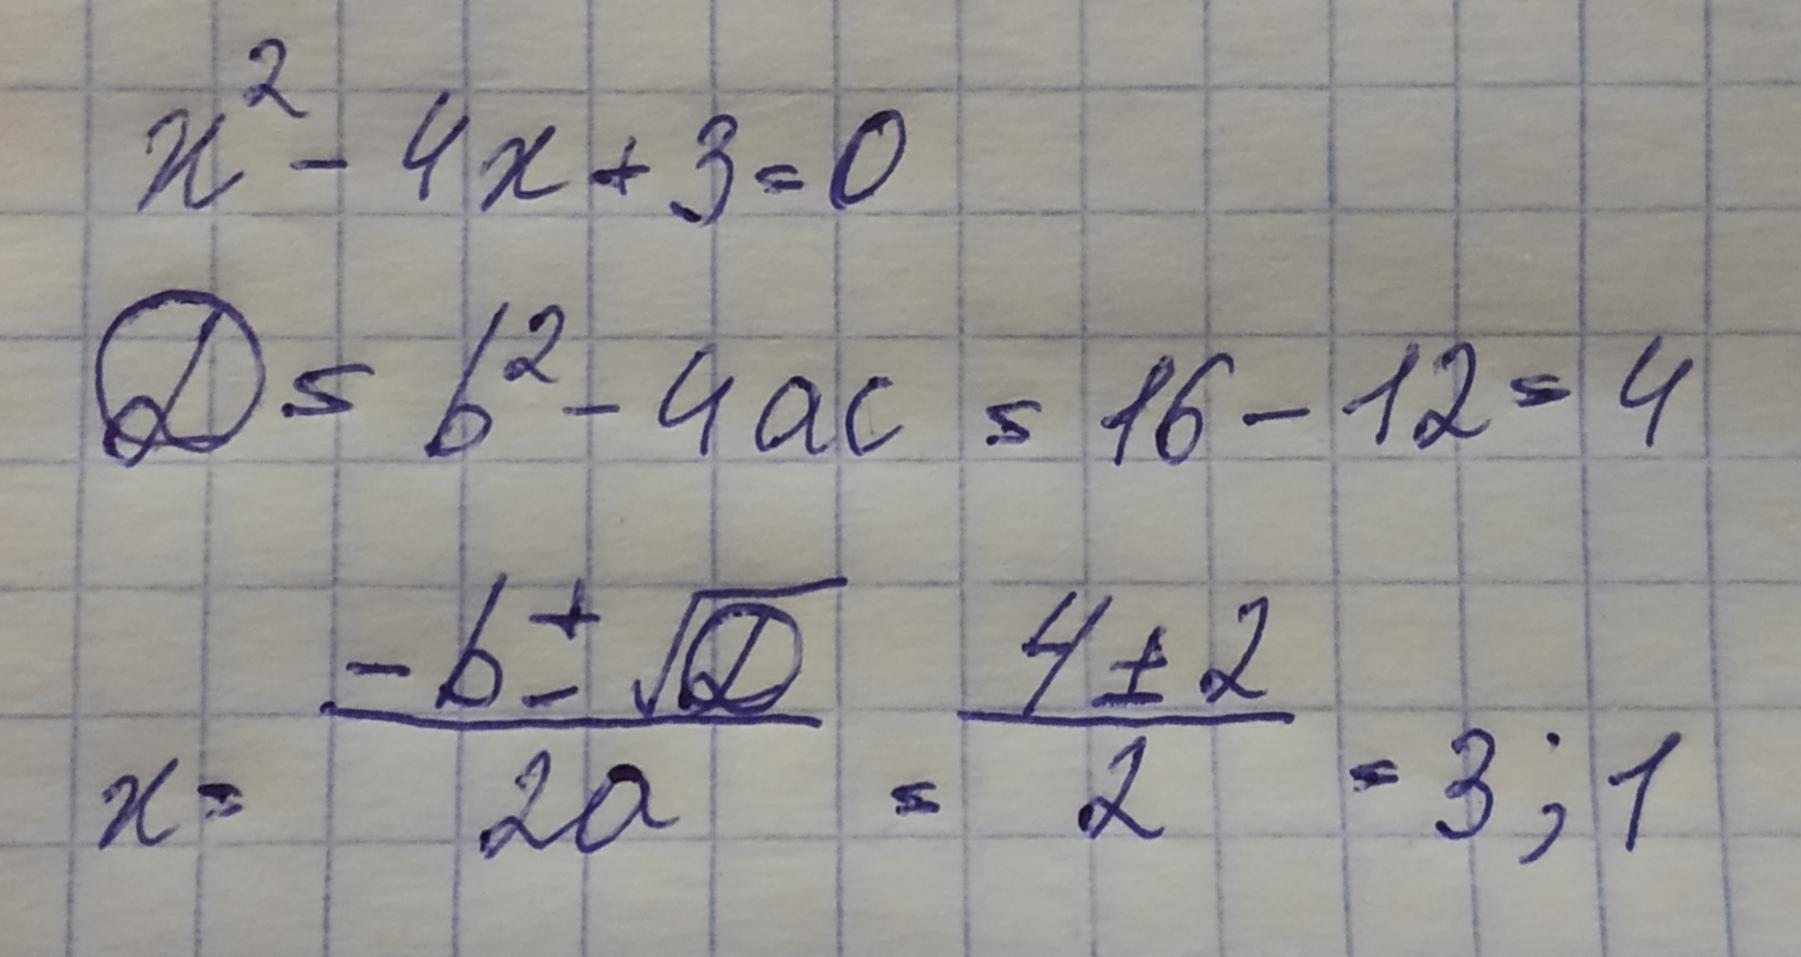 x² - 4x + 3 = 0
D = b² - 4ac = 16 - 12 = 4
x = (-b ± √D) / 2a = (4 ± 2) / 2 = 3; 1